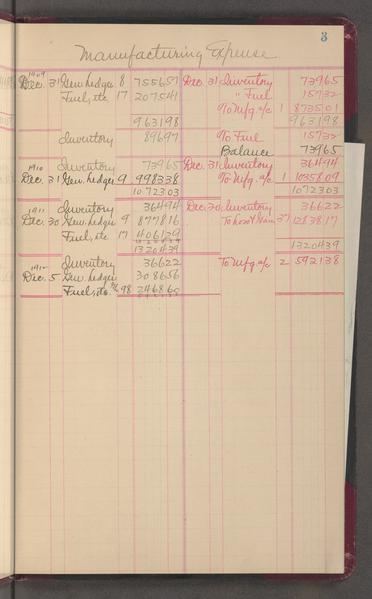 3
Manufacturing Expense
1909
Dec. 31 Gen. Ledger 8 755657 Dec. 31 Inventory 73965
Fuel, etc 17 207541 " Fuel 15732
To Mfg a/c 1 873501
963198 963198
Inventory 89697 To Fuel 15732
Balance 73965
1910 Inventory 73965 Dec. 31 Inventory 36494
Dec. 31 Gen. Ledger 9 998338 To Mfg. a/c 1 1035809
1072303 1072303
1911 Inventory 36494 Dec. 30 Inventory 36622
Dec. 30 Gen. Ledger 9 877816 To Loss & Gain 37 1283817
Fuel, etc 17 406129
1320439 1320439
Inventory 36622 To Mfg. a/c 2 592138
Dec. 5 Gen. Ledger 308656
Fuel, etc. 98 246860